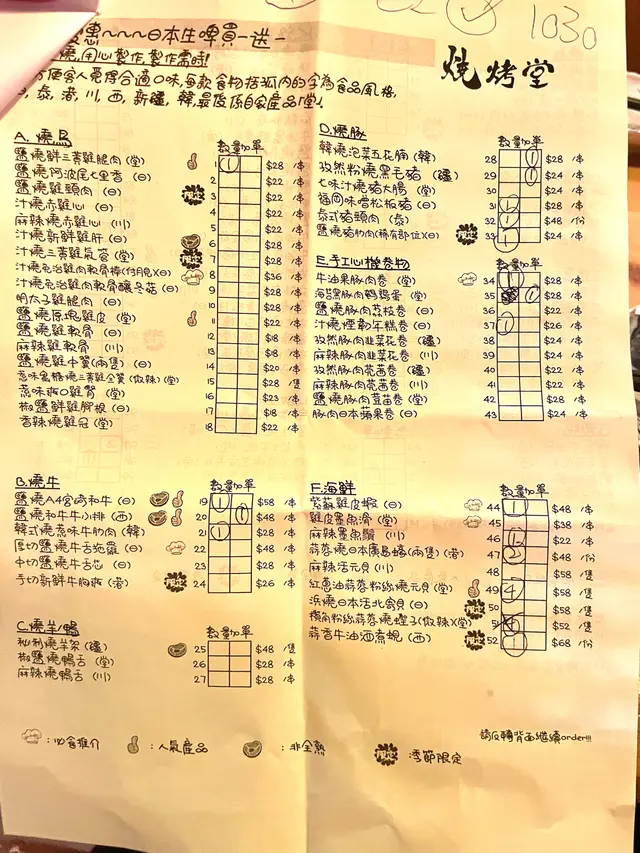 1030
惠~~~日本生啤買一送一
燒,用心製作,製作需時!
方便客人覓得合適口味,每款食物括弧內的字為食品風格,
日,泰,港,川,西,新疆,韓,最後係自家產品「堂」
燒烤堂
A. 燒鳥 數量 加單
鹽燒鮮三黃雞腿肉(堂) 1 1 $28 /本
鹽燒阿波尾七里香(日) 2 $22 /本
鹽燒雞頸肉(日) 3 $22 /本
汁燒赤雞心(日) 4 $22 /本
麻辣燒赤雞心(川) 5 $22 /本
汁燒新鮮雞肝(日) 6 $28 /本
汁燒三黃雞氣管(堂) 7 $28 /本
汁燒免治雞肉軟骨棒(日) 8 $36 /本
汁燒免治雞肉軟骨釀冬菇(日) 9 $28 /本
明太子雞腿肉(日) 10 $28 /本
鹽燒原塊雞皮(堂) 11 $22 /本
鹽燒雞軟骨(日) 12 $18 /本
麻辣雞軟骨(川) 13 $18 /本
鹽燒雞中翼(兩隻)(日) 14 $20 /本
蒜味蜜糖燒三黃雞全翼(微辣)(堂) 15 $28 /隻
蒜味爽口雞腎(堂) 16 $23 /本
椒鹽鮮雞腳根(日) 17 $18 /本
香辣燒雞冠(堂) 18 $22 /本
B. 燒牛 數量 加單
鹽燒A4宮崎和牛(日) 19 1 $58 /本
鹽燒和牛牛小排(西) 20 1 $48 /本
韓式燒蒜味牛肋肉(韓) 21 1 $28 /本
厚切鹽燒牛舌(日) 22 $48 /本
中切鹽燒牛舌芯(日) 23 $28 /本
手切新鮮牛胸爽(港) 24 $26 /本
C. 燒羊/鴨 數量 加單
秘制燒羊架(疆) 25 $48 /隻
椒鹽燒鴨舌(堂) 26 $28 /本
麻辣燒鴨舌(川) 27 $28 /本
D. 燒豚 數量 加單
韓燒泡菜五花腩(韓) 28 1 $28 /本
孜然粉燒黑毛豬(疆) 29 1 $28 /本
七味汁燒豬大腸(堂) $24 /本
福岡味噌松板豬(日) 31 1 $28 /本
泰式豬頸肉(泰) 32 1 $48 /份
鹽燒豬肋肉(稀有部位)(日) 33 1 $24 /本
E. 手工心機卷物 數量 加單
牛油果豚肉卷(堂) 34 1 $28 /本
海苔黑豚肉鵪鶉蛋(堂) 35 1 $28 /本
鹽燒豚肉荔枝卷(日) 36 $22 /本
汁燒煙鴨年糕卷(日) 37 1 $26 /本
孜然豚肉韭菜花卷(疆) 38 $24 /本
麻辣豚肉韭菜花卷(川) 39 $24 /本
孜然豚肉茼蒿卷(疆) 40 $22 /本
麻辣豚肉茼蒿卷(川) 41 $22 /本
鹽燒豚肉露笋卷(堂) 42 $28 /本
豚肉日本蘋果卷(日) 43 $24 /本
F. 海鮮 數量 加單
紫蘇雞皮蝦(日) 44 1 $48 /本
雞皮墨魚滑(堂) 45 $38 /本
麻辣墨魚鬚(川) 46 1 $22 /本
蒜蓉燒日本廣島蠔(兩隻)(港) 47 2 $48 /份
麻辣活元貝(川) 48 $58 /隻
紅蔥油蒜蓉粉絲燒元貝(堂) 49 4 $58 /隻
浜燒日本活北寄貝(日) 50 $58 /隻
欖角粉絲蒜蓉燒蟶子(微辣)(堂) 51 4 $52 /隻
蒜香牛油酒煮蜆(西) 52 1 $68 /份
:必食推介
:人氣產品
:非全熟
:季節限定
請反轉背面繼續order!!!